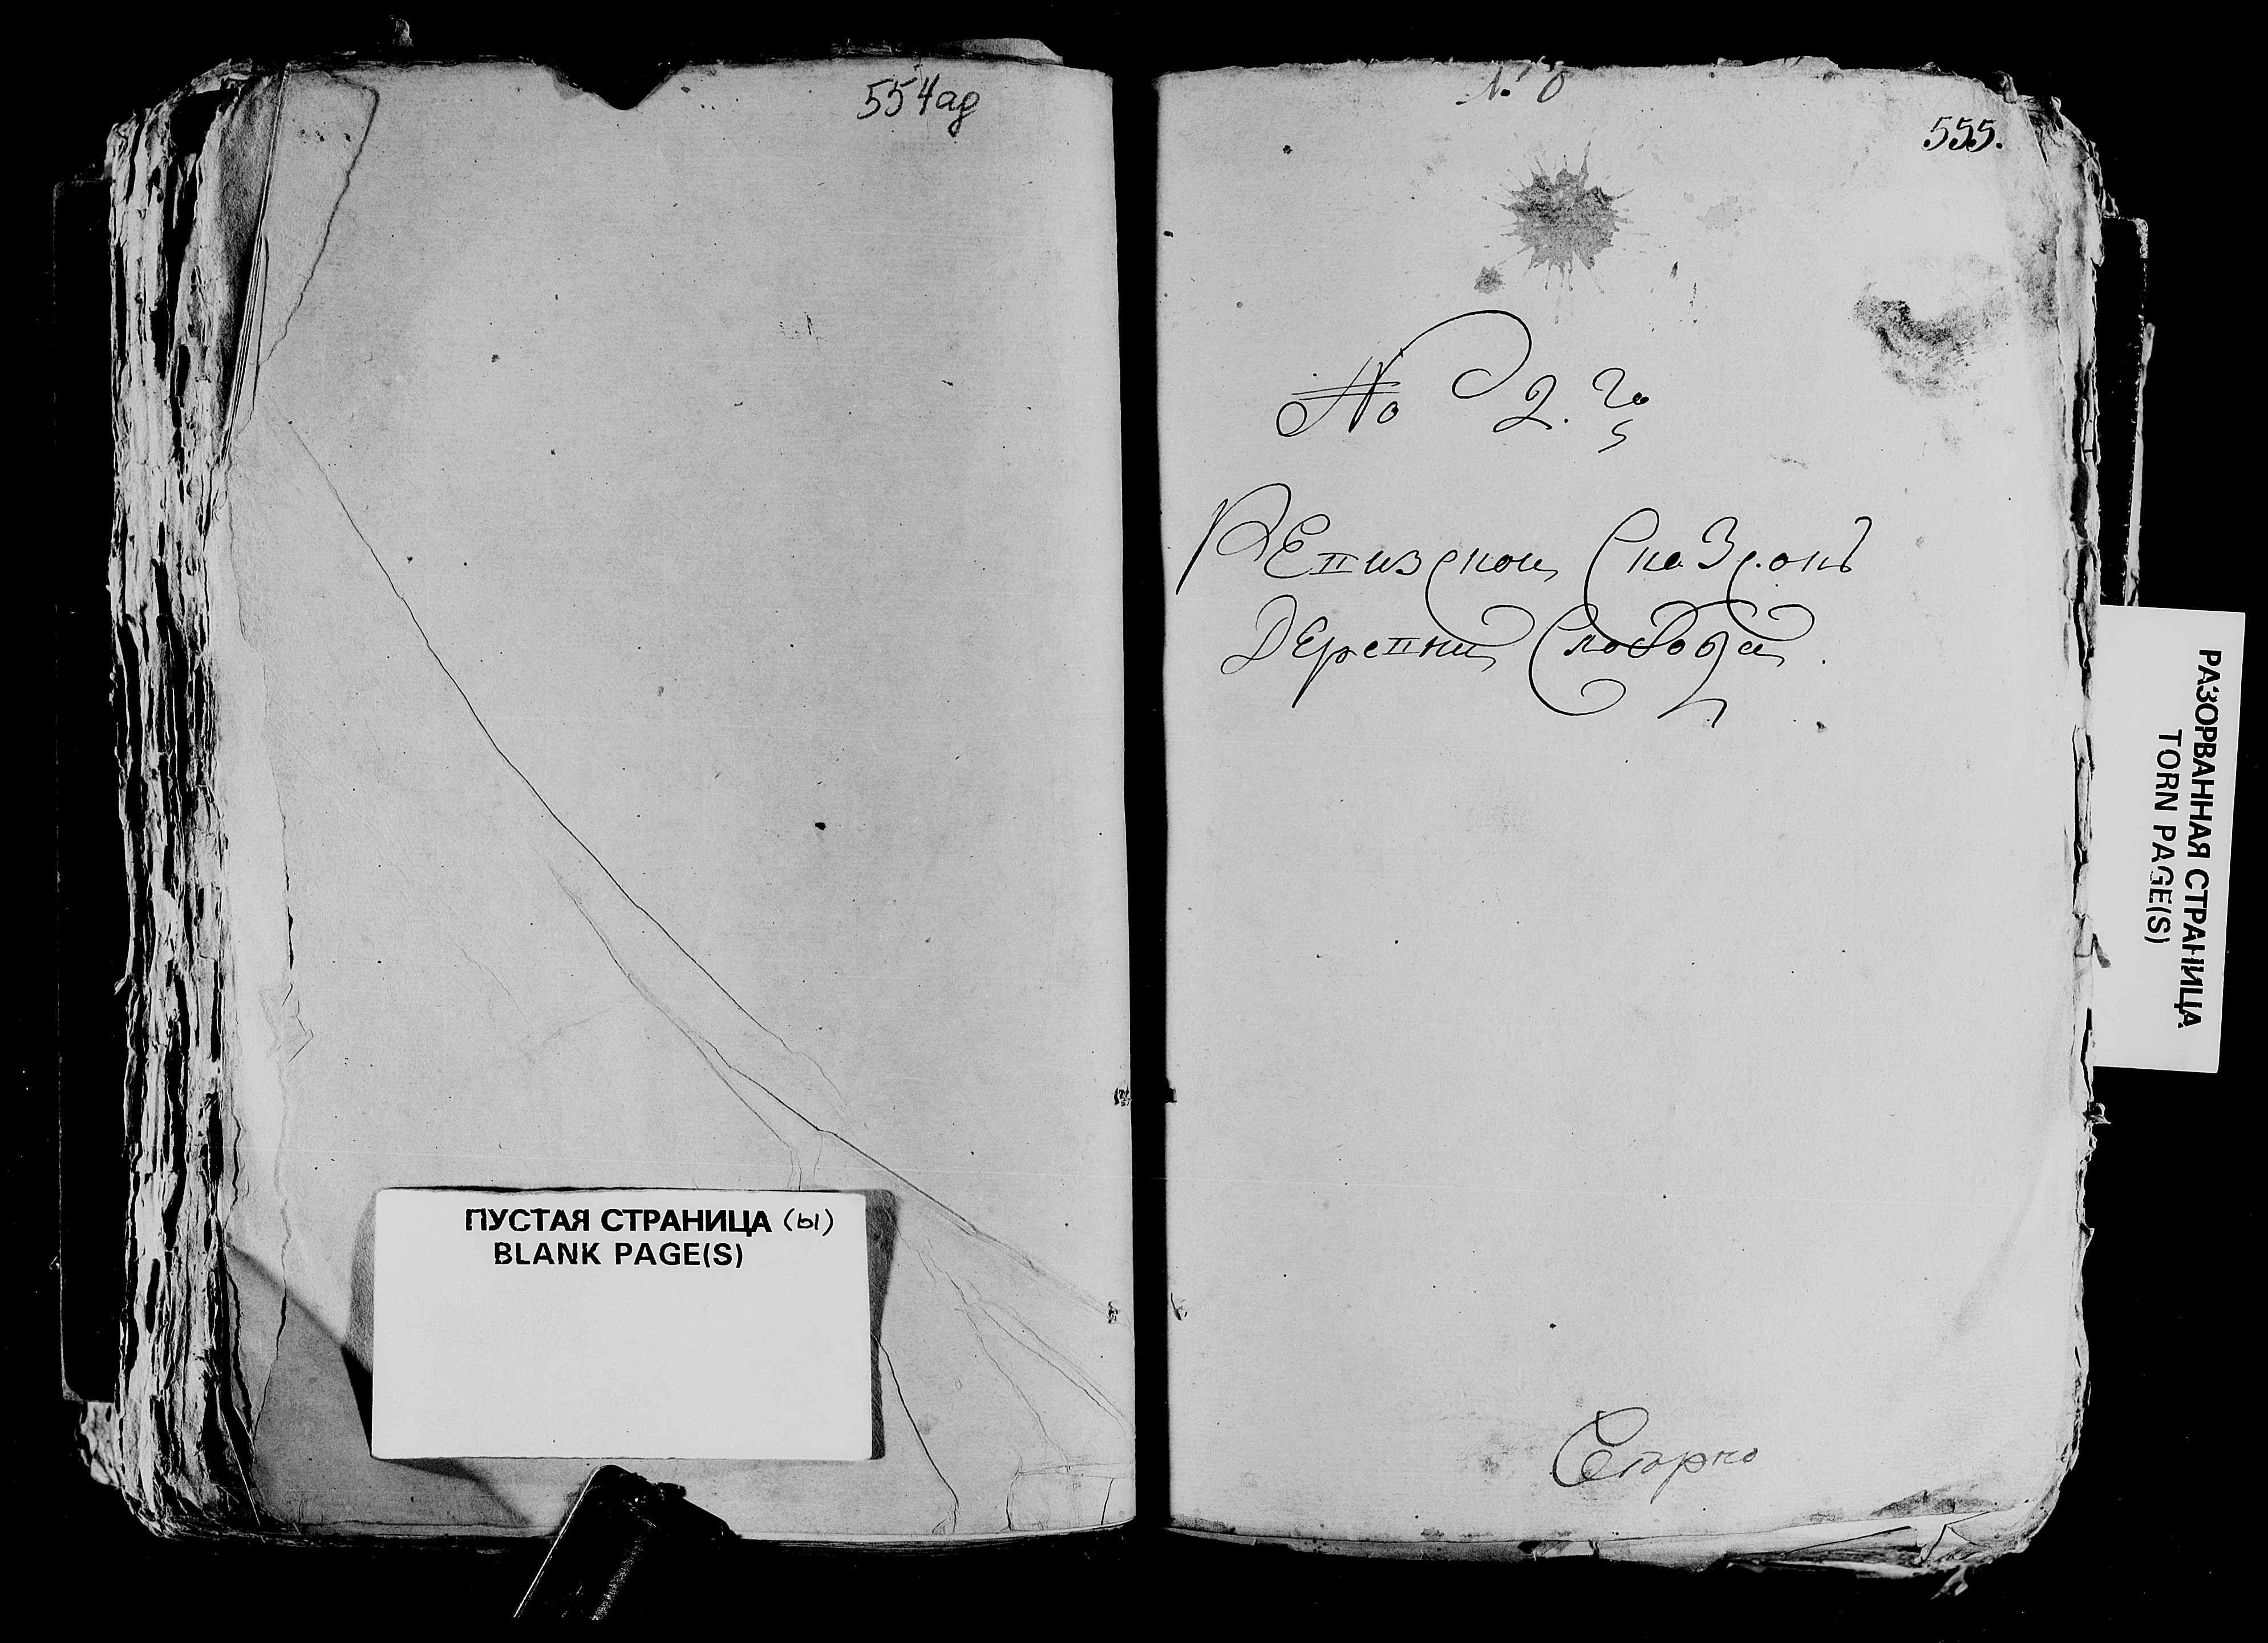 554ад
ПУСТАЯ СТРАНИЦА (ы)
BLANK PAGE(S)
555.
No 2. го
Ревизской Сказокъ
Деревни Слободы.
РАЗОРВАННАЯ СТРАНИЦА
TORN PAGE(S)